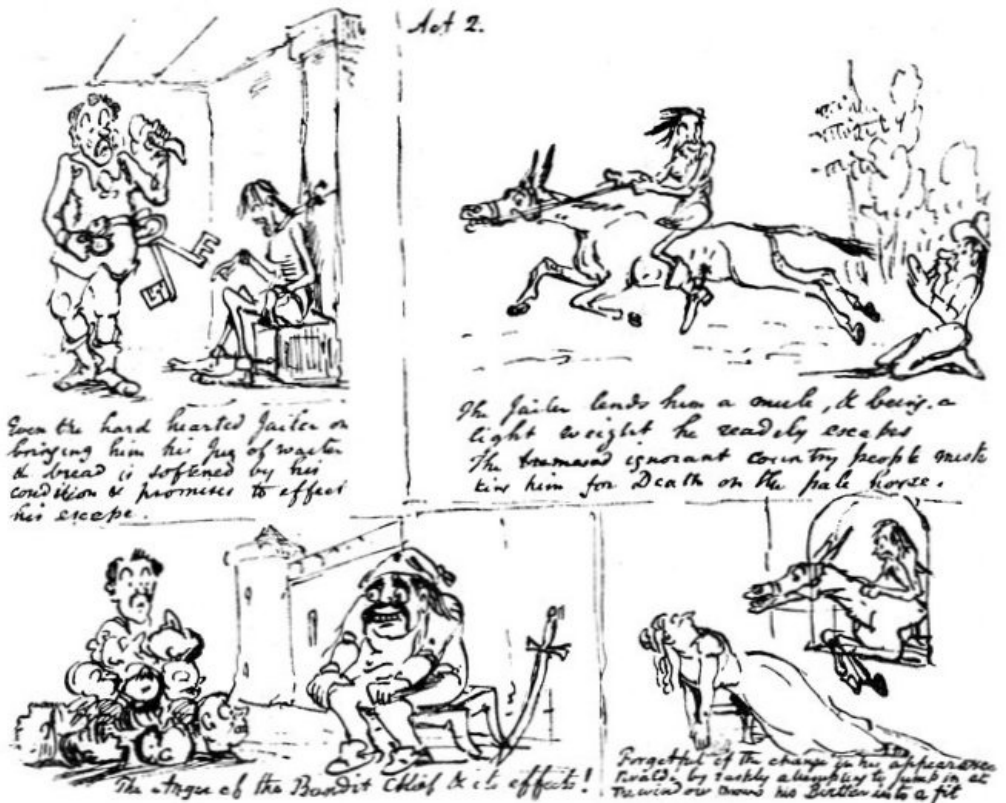 Act 2.
Even the hard hearted Jailer on
bringing him his Jug of waiter
& bread is softened by his
condition & promises to effect
his escape.
The Jailer lends him a mule, & being a
light weight he readely escapes
The ignorant country people mistt
king him for Death on the pale horse.
The Anger of the Bandit Chief & its effects!
Forgetful of the change in his appearance
by rashly attempting to jump in at
The window throws his into a fit